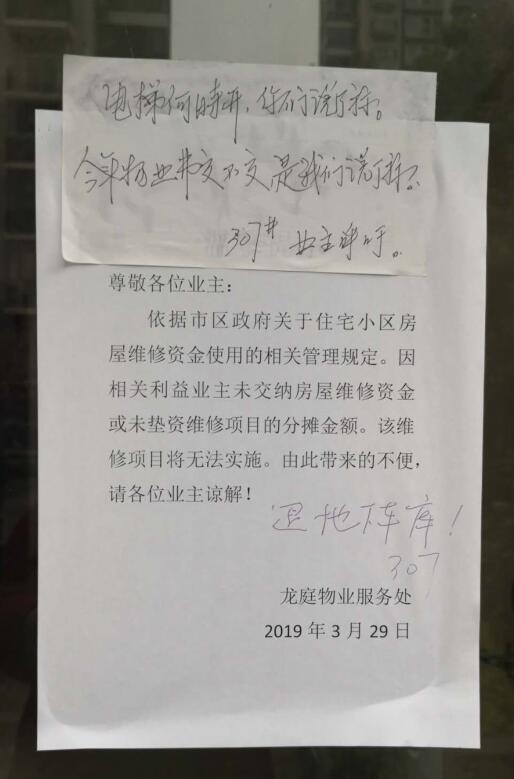 电梯何时开，你们说了称。
今年物业费交不交是我们说了称？
307# 业主呼吁。
尊敬各位业主：
依据市区政府关于住宅小区房
屋维修资金使用的相关管理规定。因
相关利益业主未交纳房屋维修资金
或未垫资维修项目的分摊金额。该维
修项目将无法实施。由此带来的不便，
请各位业主谅解！
退地下车库！
307
龙庭物业服务处
2019 年 3 月 29 日